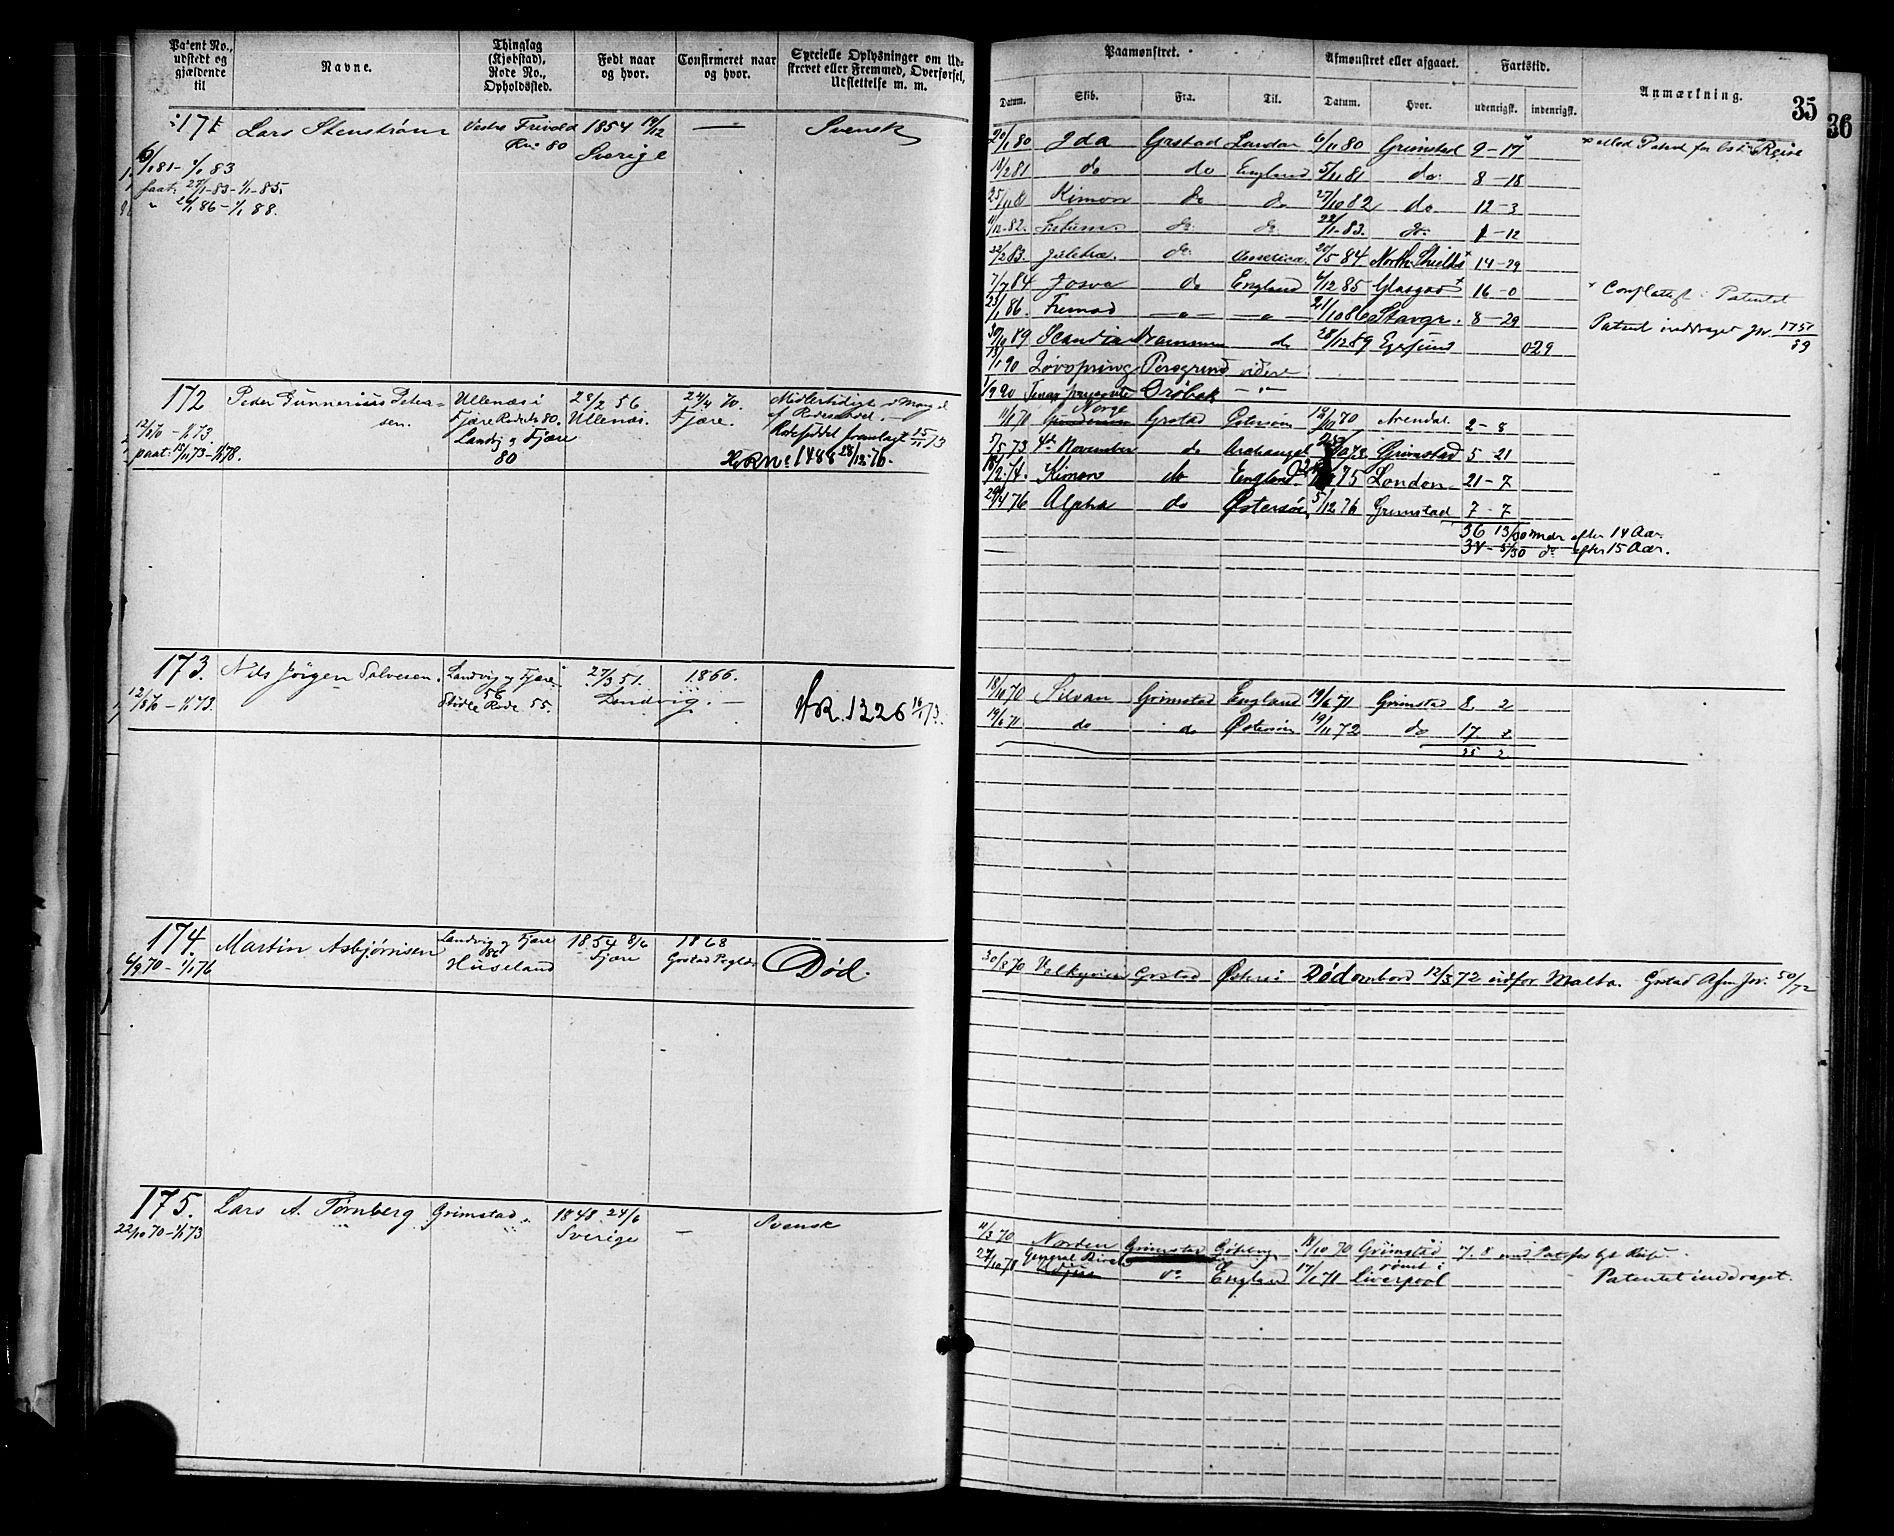 Patent No., udstedt og gjældende til
Navne.
Thinglag (Kjøbstad), Rode No., Opholdssted.
Født naar og hvor.
Confirmeret naar og hvor.
Specielle Oplysninger om Udskrevet eller Fremmed, Overførsel, Udslettelse m. m.
Paamønstret.
Afmønstret eller afgaaet.
Fartstid.
Anmærkning.
35
36
Datum. Skib. Fra. Til. Datum. Hvor. udenrigsk. indenrigsk.
171 Lars Stenstrøm Vestre Frivold 1854 19/12 — Svensk
Rno 80 Sverige
6/1 81 - 1/1 83
paat: 27/1-83 - 1/1-85
" 24/1 86 - 1/1 88.
20/1 80 Ida Grstad London 6/11 80 Grimstad 9-17
14/2 81 do do England 5/11 81 do 8-18
25/11 81 Kimon do do 27/10 82 do 12-3
11/12-82. do do 22/1-83. do 1-12
22/2 83. do 20/5 84 North Shields 14-29
7/7 84 Josva do England 6/12 85 Glasgow 16-0
23/1 86. Fremad —"— —"— 21/10 86 Stavgr. 8-29
Patent inddraget Jnr. 1751/89
30/10 89 Scandia Drammen do 28/12 89 Egersund 0 29
13/1 90 Løvspring Porsgrund videre
1/9 90 Drøbak —"—
172 Peder Gunnerius Petersen. Ullenæs i 28/2 56 24/4 70. Midlertidigt i Mangel
Fjære Rode No 80. Ullenæs. Fjære. af Rodeseddel.
12/8 70 - 1/1 73. Landvig & Fjære Rodeseddel fremlagt 15/11 73
paat: 15/11 73 - 1/1 78. 80 HvRNo 1488 28/12-76.
11/8 70 Norge Grstad Østersøen 18/11 70 Arendal. 2-8
5/5 73 4de November do Archangel Grimstad 5-21
18/2-74. Kimon do England 75 London 21-7
29/4 76 Alpha do Østersøen 5/12 76 Grimstad 7-7
36 13/30 Mdr efter 14 Aar.
34 - 5/30 do efter 15 Aar.
173. Nils Jörgen Salvesen. Landvig og Fjære 27/3 51. 1866.
12/8 70 - 1/1 73. 56 Landvig. —
Støle Rode 55. HvR. 1226 73.
18/10 70 Silvan Grimstad England 19/6 71 Grimstad 8. 2
19/6 71 do do Østersøen 19/11 72 do 17.
25 2
174. Martin Asbjørnsen Landvig og Fjære 1854 8/6 1868 Død.
6/9 70 - 1/1 76 86 Fjære
Huseland
30/8 70 Valkyrien Grstad Østersø Død ombord 12/3 72 udfor Malta. Grstad Afm Jnr. 50/72
175. Lars A. Tørnberg Grimstad 1848 24/6 — Svensk
22/10 70 - 1/1 73 Sverige
11/3 70 Norden Grimstad 18/10 70 Grimstad 7. 8
27/10 70 General do England 17/1 71 rømt i Liverpool
Patentet inddraget.